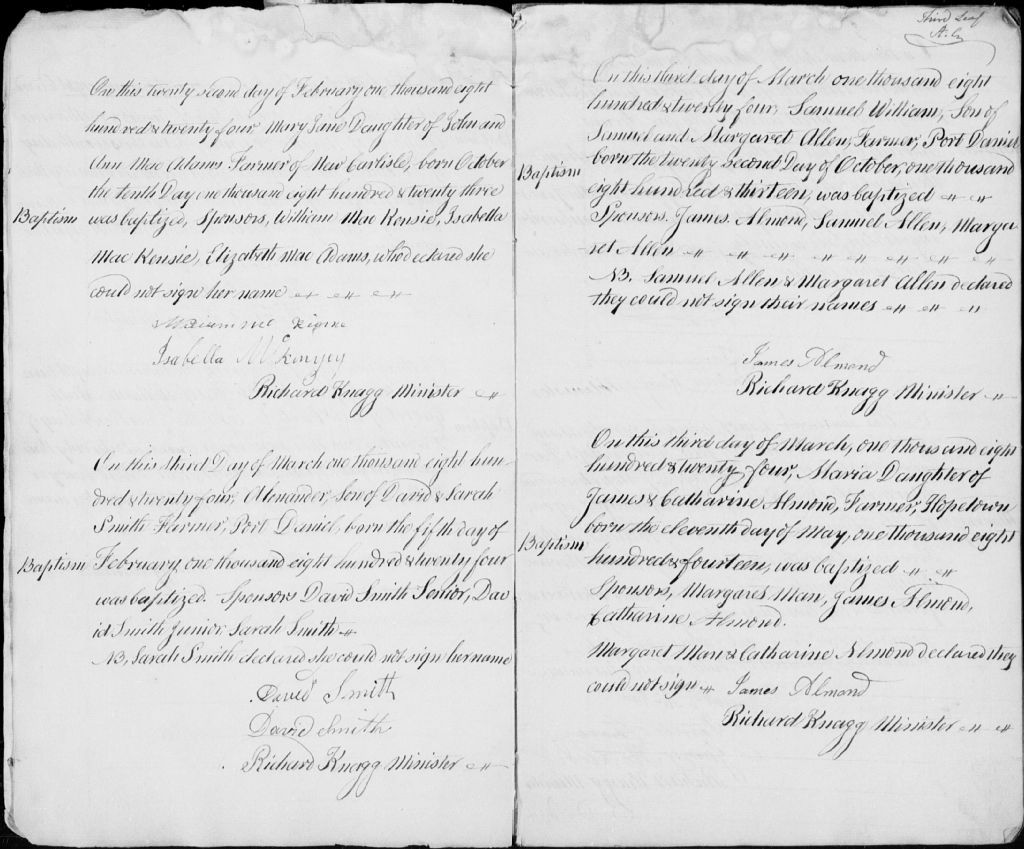 On this twenty second day of February one thousand eight
hundred & twenty four Mary Jane Daughter of John and
Ann Mac Adams Farmer of New Carlisle, born October
the tenth Day one thousand eight hundred & twenty three
Baptism was baptized, Sponsors, William Mac Kensie, Isabella
Mac Kensie, Elizabeth Mac Adams, who declared she
could not sign her name
Isabella
Richard Knagg Minister
On this third Day of March one thousand eight hun-
dred & twenty four, Alexander, Son of David & Sarah
Smith Farmer, Port Daniel, born the fifth day of
Baptism February, one thousand eight hundred & twenty four
was baptized. Sponsors David Smith Senior, Dav
id Smith Junior Sarah Smith
NB, Sarah Smith declared she could not sign her name
David Smith
David Smith
Richard Knagg Minister
Third Leaf
On this third day of March one thousand eight
hundred & twenty four, Samuel William, Son of
Samuel and Margaret Allen, Farmer, Port Daniel
born the twenty second Day of October, one thousand
Baptism eight hundred & thirteen, was baptized
Sponsors. James Almond, Samuel Allen, Marga-
ret Allen
NB. Samuel Allen & Margaret Allen declared
they could not sign their names
James Almond
Richard Knagg Minister
On this third day of March, one thousand eight
hundred & twenty four, Maria Daughter of
James & Catharine Almond, Farmer, Hopetown
born the eleventh day of May, one thousand eight
Baptism hundred & fourteen, was baptized
Sponsors, Margaret Man, James Almond,
Catharine Almond.
Margaret Man & Catharine Almond declared they
could not sign James Almond
Richard Knagg Minister